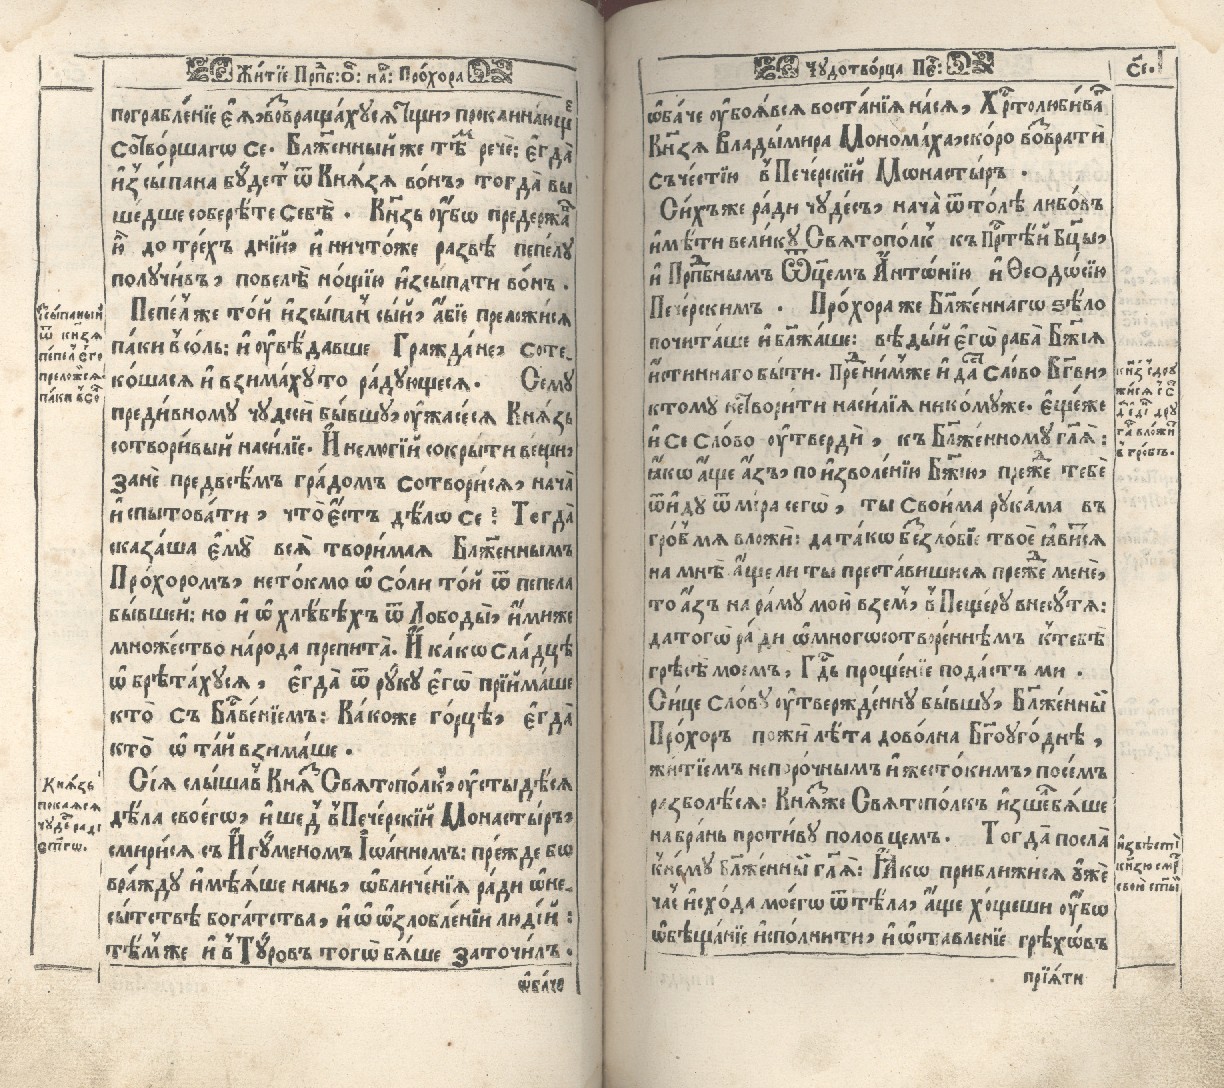 Житїе Прпб: ѻ҃: на҃: Про́хора
пограбле́нїе є҆я̀, во́звраща́хуся тщи, проклина́ющ
сотво́ршагѡ се. Бл҃же́нный же тѣ́м рече: є҆гда̀
и҆зсы́пана бу́дет ѿ Кня́зя во́нъ, тогда̀ вы
ше́дше собере́те себѣ̀. Кнзь ѹ҆́бѡ предержа́
и҆̀ до тре́хъ днїй, и҆ ничто́же развѣ̀ пе́пелу
получи́въ, повелѣ̀ но́щїю и҆зсы́пати во́нъ.
Пе́пел же то́й и҆зсы́пан сы́й, а҆́бїе преложи́ся
па́ки в со́ль: и҆ ѹ҆вѣ́давше Гражда́не, соте-
ко́шася и҆ взима́ху то ра́дующеся. Сему
преди́вному чудеси̍ бы́вшу, ѹ҆жасе́ся Кня́зь
сотвори́вый наси́лїе. И҆ немогі́й сокры́ти ве́щи,
зане̍ предвсѣ́мъ гра́домъ сотвори́ся, нача̀
и спытова́ти, что̀ є҆́стъ дѣ́лѡ се? Тогда̀
сказа́ша є҆му̀ вся̀ твори́мая Бл҃же́ннымъ
Про́хоромъ, не то́кмо ѡ҆ со́ли то́й ѿ пе́пела
бы́вшей: но и҆ ѡ҆ хлѣ́бѣхъ ѿ Лободы̀, и҆́миже
мно́жество наро́да препита̀. И҆ ка́кѡ сла́дцѣ
ѡ҆брѣта́хуся, є҆гда̀ ѿ ру́ку є҆гѡ̀ прїима́ше
кто̀ съ Бл҃ве́нїемъ: Ка́коже го́рцѣ, є҆гда̀
кто̀ ѡ҆тай взима́ше.
Сїя̀ слы́шав Кнзь Святопо́лкъ, ѹ҆стыдѣ́ся
дѣ́ла своегѡ̀, и҆ ше́д в Пече́рскїй Монасты́ръ,
смири́ся съ И҆гу́меномъ І҆ѡа́нномъ: пре́жде бѡ
вра́жду и҆мѣ́яше нань, ѡ҆бличе́нїя ра́ди ѡ҆не-
сы́тствѣ бога́тства, и҆ ѡ҆ ѡ҆злобле́нїи люді́й:
тѣ́мже и҆ в Ту́ровъ тогѡ̀ бя́ше заточи́лъ.
ѡ҆ба́че
и҆зсы́паный
ѿ кн҃зя
пе́пел є҆го
преложи́ся
па́ки в со
Кня́зь
покая́ся
чуде́с ра́ди
ст҃гѡ.
Чудотво́рца Пе́:
Се.
ѡ҆ба́че ѹ҆боя́вся воста́нїя на ся, Хр҃толюби́ва
Кн҃зя Влады́мира Монома́ха, ско́ро во́зврати̍
съ че́стїю в Пече́рскїй Монасты́ръ.
Си́хъ же ра́ди чуде́съ, нача̀ ѿто́лѣ любо́въ
и҆мѣ́ти вели́ку Святопо́лк къ Пр҃тѣ́й Бц҃ы,
и҆ Прп҃бнымъ Ѿц҃емъ А҆нтѡ́нїю и҆ Ѳеодо́сїю
Пече́рскимъ. Про́хора же Бл҃же́ннагѡ ѕѣло
почита́ше и҆ бл҃жа́ше: вѣ́дый є҆гѡ̀ раба̀ Бж҃їя
и҆́стиннаго бы́ти. Пред ни́мже и҆ да́ст сло́во Бг҃ви,
ктому не твори́ти наси́лїя нико́муже. є҆ще́же
и҆ се сло́во ѹ҆тверди̍, къ Бл҃же́нному гл҃я̀:
ꙗ҆́кѡ а҆́ще а҆́зъ, по и҆зволе́нїю Бж҃їю, пре́жде тебе̍
ѿи́ду ѿ ми́ра сегѡ̀, ты свои́ма рука́ма въ
гро́б мя вложи̍: да та́кѡ беззло́бїе твоѐ ꙗ҆ви́тся
на мнѣ̀. а҆́ще ли ты преста́вишися пре́жде мене̍,
то а҆́зъ на ра́му мои̍ взе́м, в Пеще́ру внесу́ тя:
да тогѡ̀ ра́ди ѡ҆ мно́гѡ сотворе́ннѣмъ к тебѣ̀
грѣсѣ̀ моем, Гд҃ь проще́нїе пода́стъ ми.
Си́це сло́ву ѹ҆твержде́нну бы́вшу, Бл҃же́нны
Про́хоръ пожи̍ лѣ́та дово́лна Бг҃оуго́днѣ,
житїе́мъ непоро́чнымъ и҆ жесто́кимъ, посе́мъ
разболѣ́ся: Кня́зь же Святопо́лкъ и҆зше́л бя́ше
на бра́нь проти́ву половцемъ. Тогда̀ посла̀
к не́му бл҃же́нны гл҃я̀: Ꙗ҆кѡ прибли́жися ѹ҆жѐ
ча́с и҆схо́да моегѡ̀ ѿ тѣ́ла, а҆́ще хо́щеши ѹ҆́бѡ
ѡ҆бѣща́нїе и҆спо́лнити, и҆ ѡ҆ставле́нїе грѣхѡ́въ
прїя́ти
в гро́бъ.
и҆звѣсти
кня́зю сме́р
свои ст҃ы